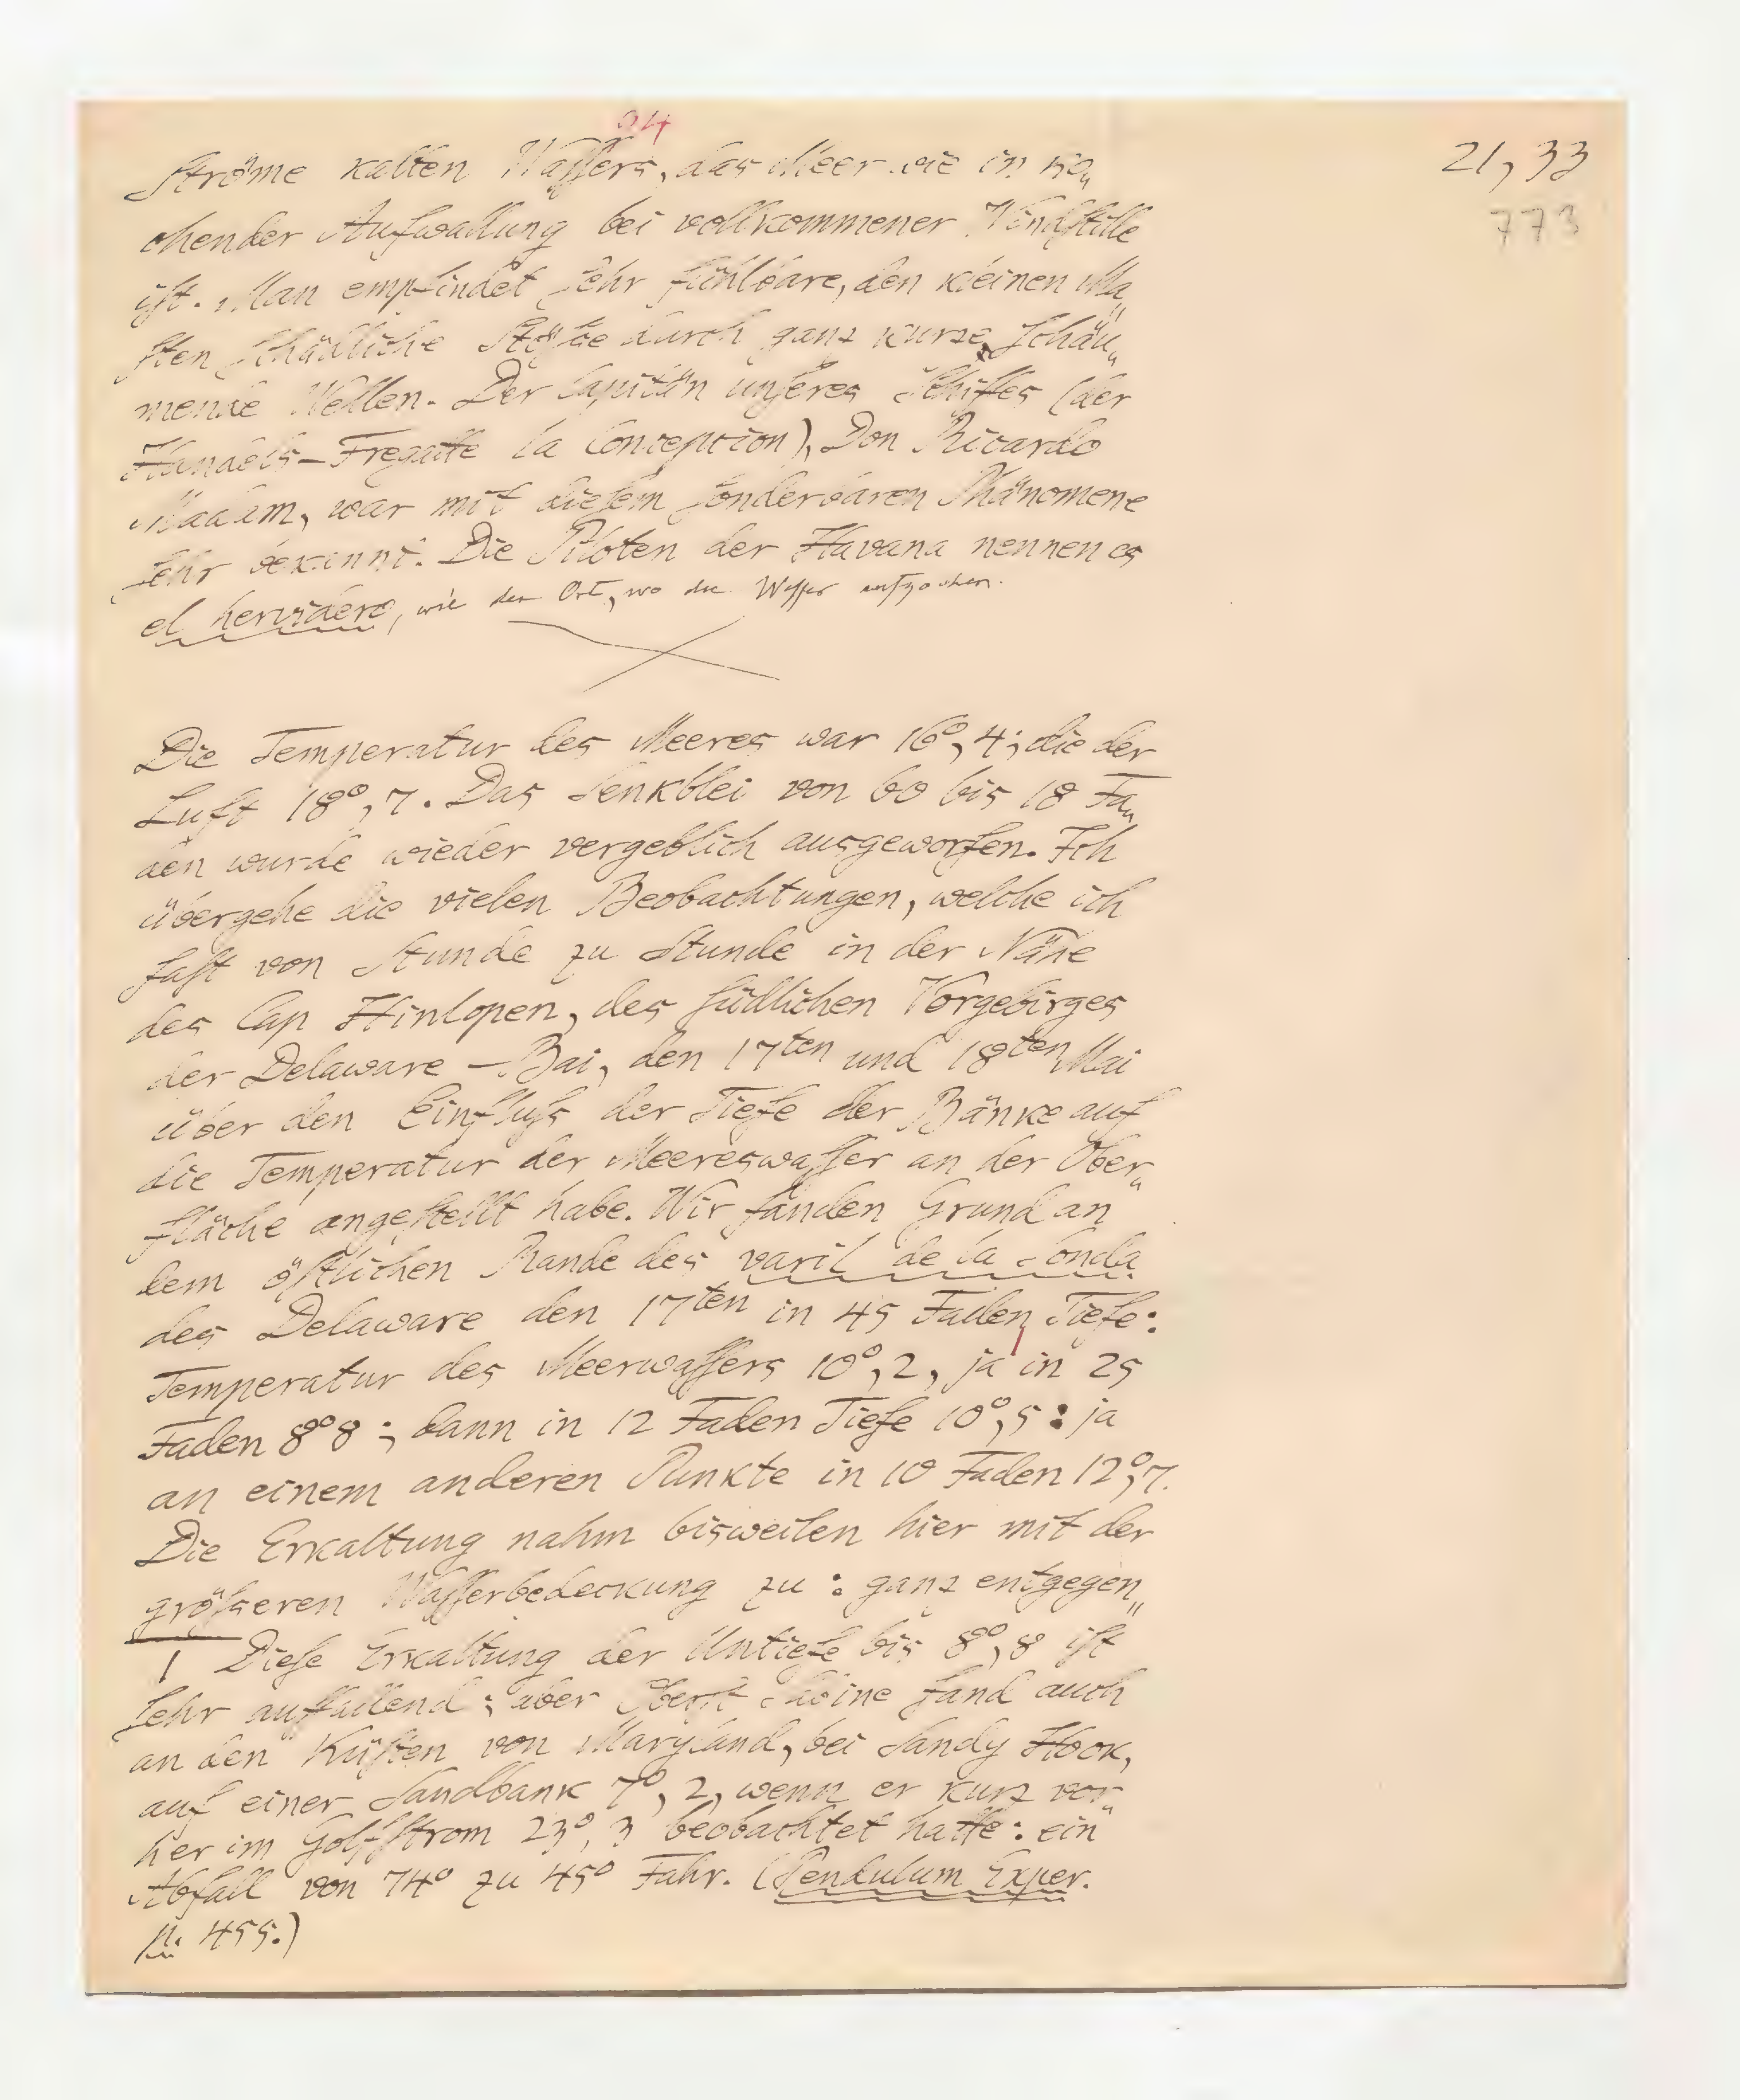 94
21, 33
773
Ströme kalten Wassers, das Meer wie in ko„
chender Aufwallung bei vollkommener Windstille
ist. Man empfindet sehr fühlbare, den kleinen Ma„
sten schädliche Stöße durch ganz kurze schäu„
mende Wellen. Der Capitän unseres Schiffes (der
Handels-Fregatte la Conception), Don Ricardo
Madam, war mit diesem sonderbaren Phänomene
sehr bekannt. Die Piloten der Havana nennen es
el hervidero, wie der Ort, wo die Wasser aufkochen.
Die Temperatur des Meeres war 16°, 4; die der
Luft 18°, 7. Das Senkblei von 60 bis 18 Fa„
den wurde wieder vergeblich ausgeworfen. Ich
übergehe die vielen Beobachtungen, welche ich
fast von Stunde zu Stunde in der Nähe
des Cap Hinlopen, des südlichen Vorgebirges
der Delaware-Bai, den 17ten und 18ten Mai
über den Einfluß der Tiefe der Bänke auf
die Temperatur der Meereswasser an der Ober„
fläche angestellt habe. Wir fanden Grund an
dem östlichen Rande des varil de la Sonda
des Delaware den 17ten in 45 Faden Tiefe:
Temperatur des Meerwassers 10°, 2, ja in 25
Faden 8°8; dann in 12 Faden Tiefe 10°, 5: ja
an einem anderen Punkte in 10 Faden 12°, 7.
Die Erkaltung nahm bisweilen hier mit der
größeren Wasserbedeckung zu: ganz entgegen„
1 Diese Erkaltung der Untiefe bis 8°, 8 ist
sehr auffallend; aber Oberst Sabine fand auch
an den Küsten von Maryland, bei Sandy Hook,
auf einer Sandbank 7°, 2, wenn er kurz vor„
her im Golfstrom 23°, 3 beobachtet hatte: ein
Abfall von 74° zu 45° Fahr. (Pendulum Exper.
p. 455.)